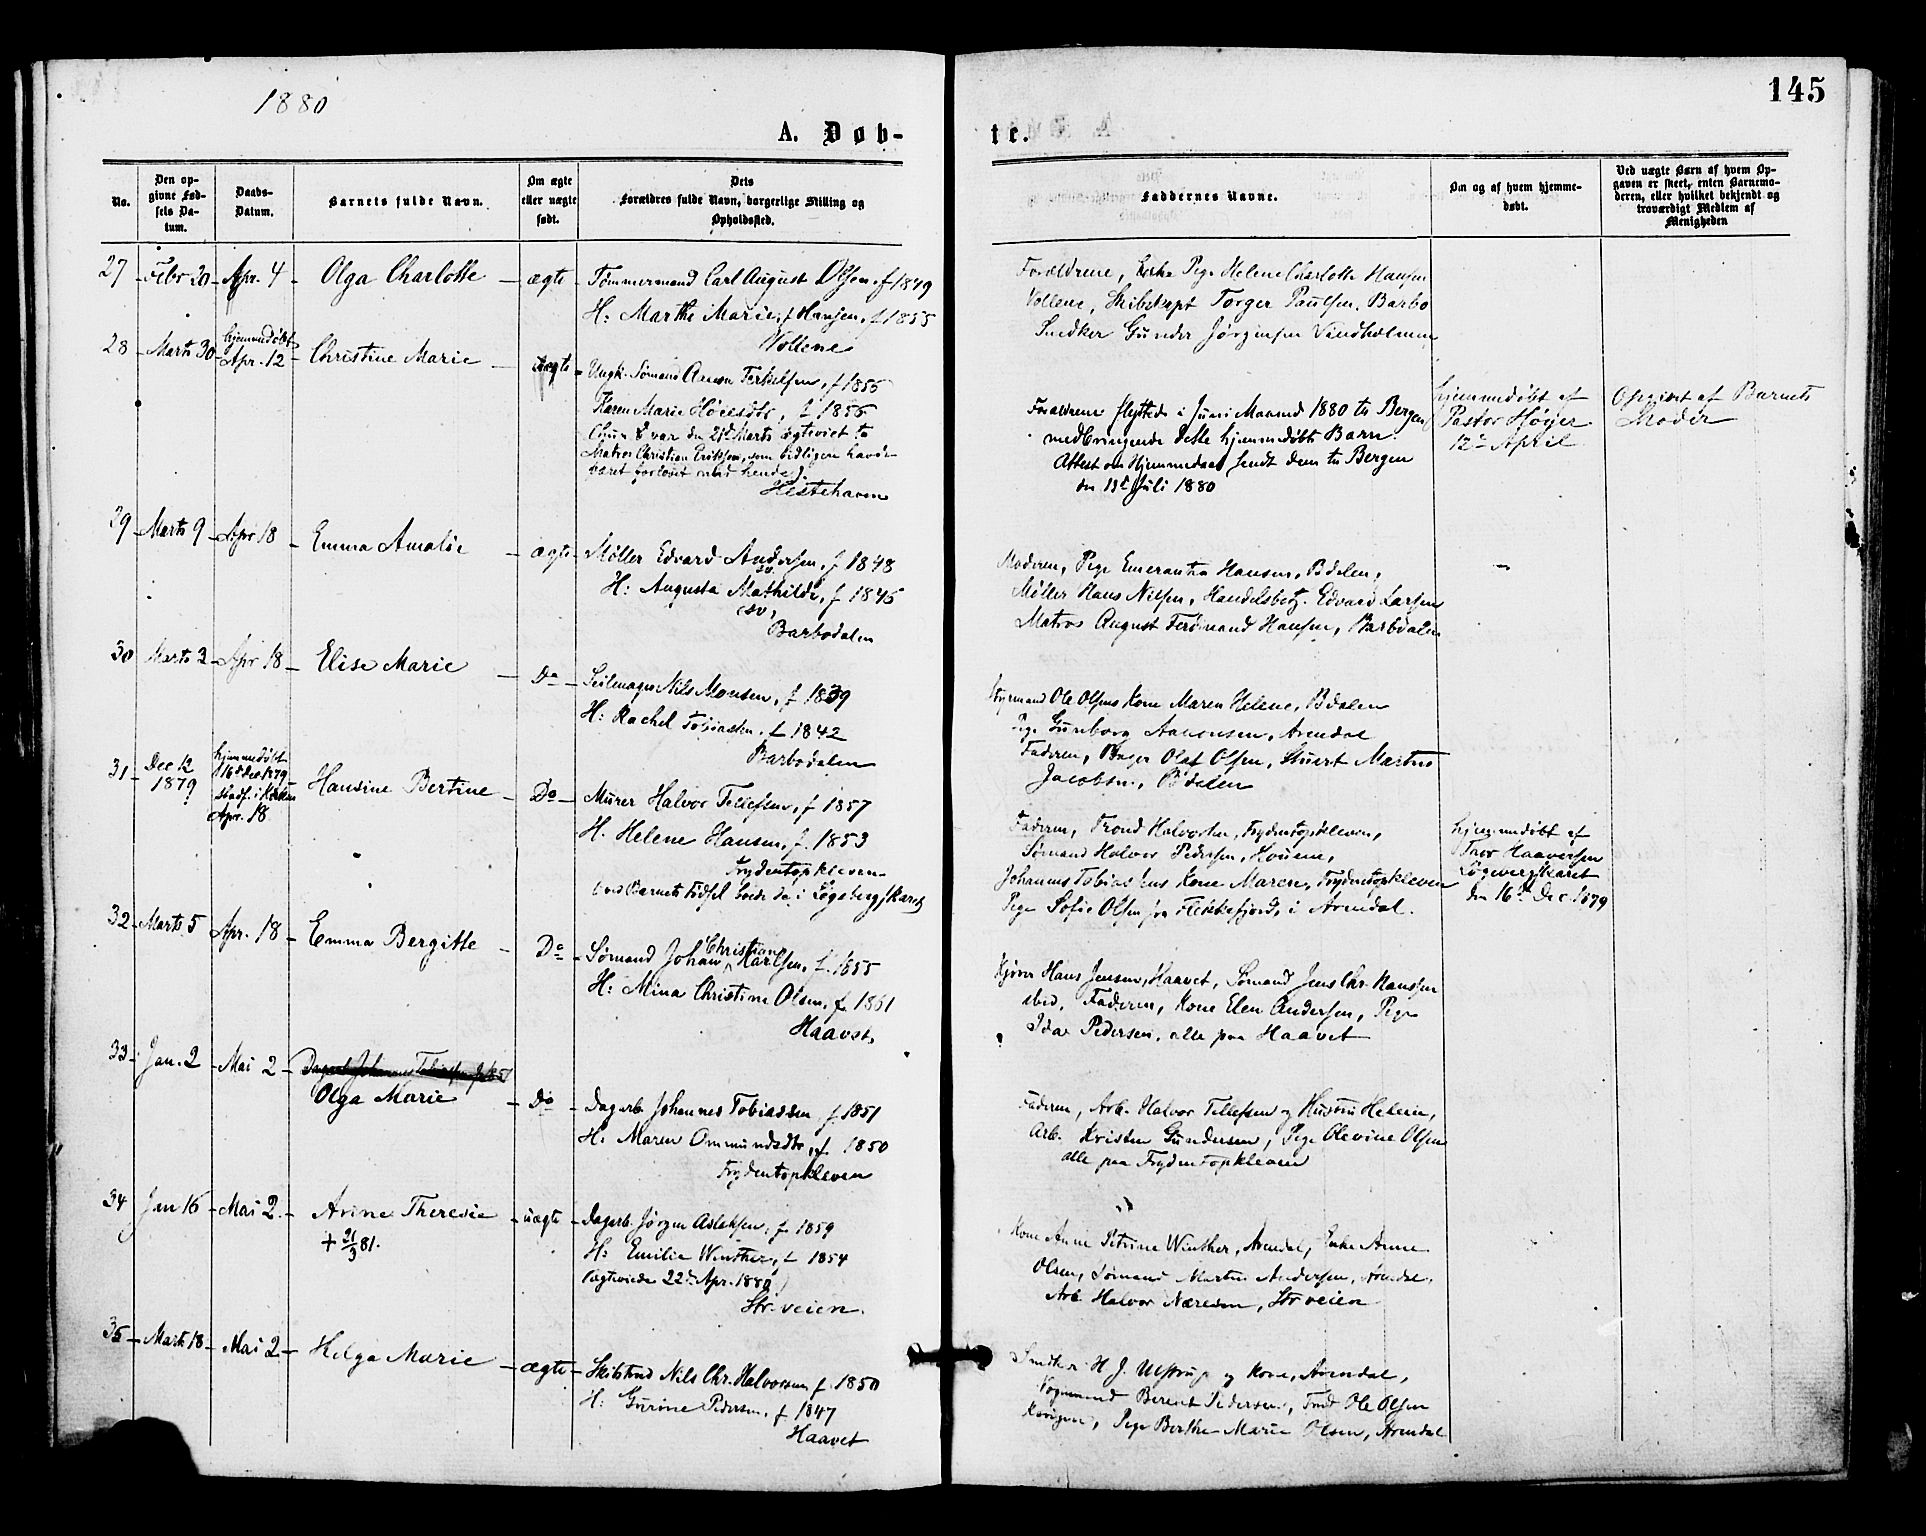 1880
145
A. Døb-
te.
No.
Den op-
givne Fød-
sels Da-
tum.
Daabs-
Datum.
Barnets fulde Navn.
Om ægte
eller uægte
født.
Dets
Forældres fulde Navn, borgerlige Stilling og
Opholdssted.
Faddernes Navne.
Om og af hvem hjemme-
døbt.
Ved uægte Børn af hvem Op-
gaven er skeet, enten Barnemo-
deren, eller hvilket bekjendt og
troværdigt Medlem af
Menigheden
27 Febr 20 Apr. 4 Olga Charlotte ægte Tømmermand Carl August Olsen, f 1849
H: Marthe Marie, f Hansen, f 1855
Vollene
Forældrene, Pige Helene Charlotte Hansen
Vollene, Skibskapt Torger Paulsen, Barbo
Snedker Gunder Jørgensen Vindholmen
28 Marts 30 hjemmedøbt
Apr. 12 Christine Marie uægte Ungk. Sømand Terkelsen, f 1855
Karen Marie f 1855
(hun var den 21de Marts ægteviet to
Matros Christian Eriksen, som tidligere havde
været forlovet med hende).
Hestehaven
Forældrene flyttede i Juni Maaned 1880 to Bergen
medbringende dette hjemmedøbte Barn.
Attest om Hjemmedaab sendt dem to Bergen
den 13de Juli 1880
hjemmedøbt af
Pastor Høyer
12te April
Opgivet af Barnets
Moder
29 Marts 9 Apr 18 Emma Amalie ægte Møller Edvard Andersen, f 1848
H: Augusta Mathilde, f 1845
Barbodalen
Moderen, Pige Emerantia Hansen, Bdalen,
Møller Hans Nilsen, Handelsbetj. Edvard Larsen
Matros August Ferdinand Hansen, Barbodalen
30 Marts 3 Apr 18 Elise Marie Do Seilmager Nils Monsen, f 1839
H: Rachel Tobiasden, f 1842
Barbodalen
Styrmand Ole Olsens Kone Maren Helene, Bdalen
Pige Gunborg Aanonsen, Arendal
Faderen, Olaf Olsen, Stuert Martus
Jacobsen, Bdalen
31 Dec 12
1879 hjemmedøbt
16de Dec 1879
stadf. i Kirken
Apr. 18 Hansine Bertine Do Murer Halvor Tellefsen, f 1857
H. Helene Hansen, f. 1853
Frydentopkleven
(ved Barnets Fødsel boede de i Løgebergskaret)
Faderen, Trond Halvorsen, Frydentopkleven,
Sømand Halvor Pedersen, Houene,
Johannes Tobiassens Kone Maren, Frydentopkleven
Pige Sofie Olsen fra Flekkefjord, i Arendal.
hjemmedøbt af
Thor Haaversen
den 16de Dec 1879
32 Marts 5 Apr. 18 Emma Bergitte Do Sømand Johan Christian Karlsen, f. 1855
H: Mina Christine Olsen, f 1861
Haavet.
Hans Jensen, Haavet, Sømand Jens Chr. Hanssen
ibid, Faderen, Kone Elen Andersen, Pige
Ida Pedersen, alle paa Haavet
33 Jan. 2 Mai 2 Dagarb Johannes Tobiassen f 1851
Olga Marie Do Dagarb. Johannes Tobiassen f 1851
H: Maren Ommundsdtr, f 1850
Frydentopkleven
Faderen, Arb. Halvor Tellefsen og Hustru Helene,
Arb. Kristen Gundersen, Pige Olevine Olsen
alle paa Frydentopkleven
34 Jan 16 Mai 2 Arine Theresie
+ 21/3 81. uægte Dagarb. Jørgen Aslaksen, f 1859
H: Emilie Winther, f 1854
(ægteviede 22de Apr. 1880)
Str. veien.
Kone Anne Petrine Winther, Arendal, Enke Anne
Olsen, Sømand Martin Andersen, Arendal,
Arb. Halvor Næresen, Strveien
35 Marts 18 Mai 2 Helga Marie ægte Nils Chr. Halvorsen f. 1850
H: Gurine Pedersen, f 1847
Haavet
Snedker H. J. Ulstrup og Kone, Arendal,
Vognmand Berent Pedersen, Ole Olsen
Pige Berthe Marie Olsen, Arendal